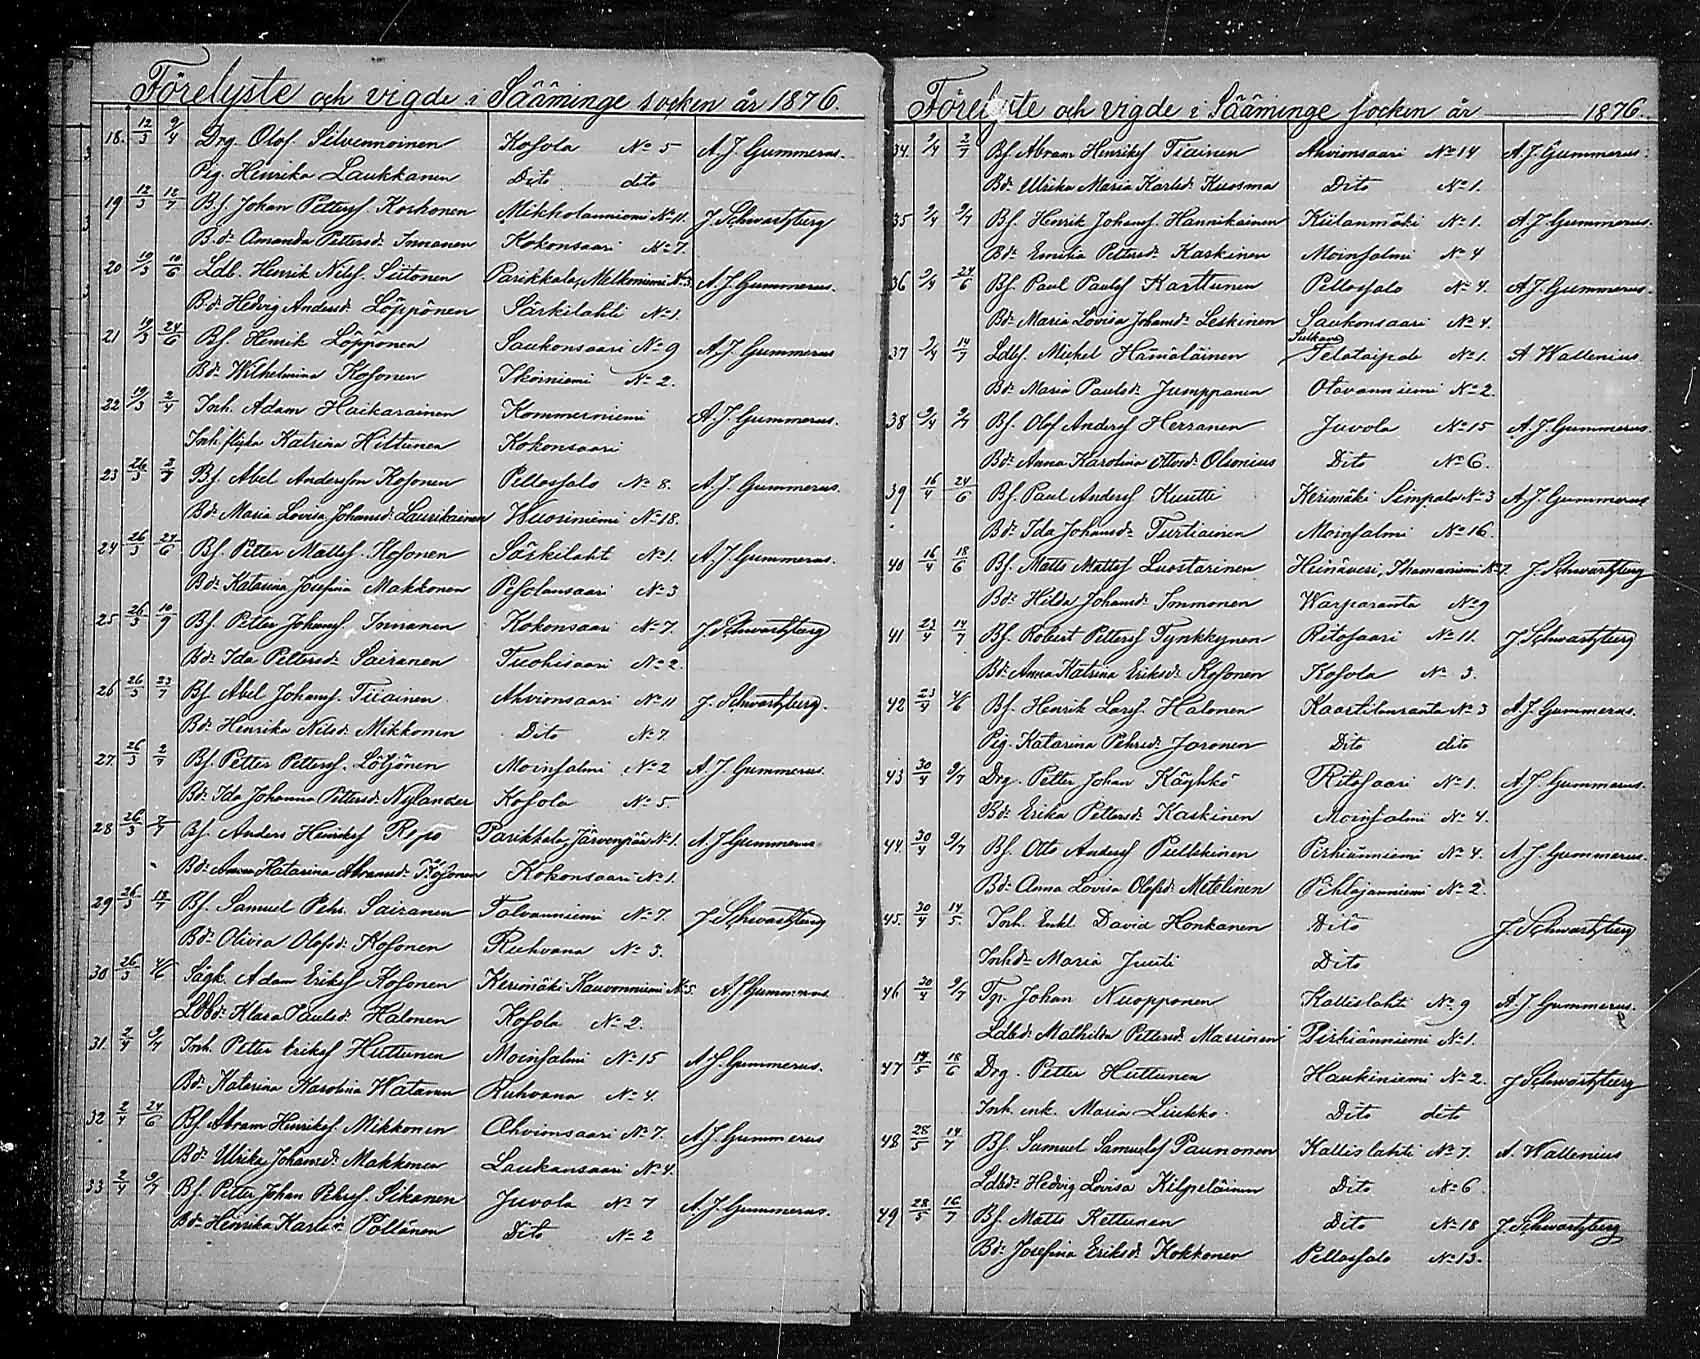 Förelyste och vigde i Sääminge socken år 1876.
18. 12/3 9/4 Drg. Olof Silvennoinen Kosola No 5 A. J. Gummerus.
Pig. Henrika Laukkanen Dito dito
19 12/3 Bs. Johan Petterss. Koskonen Mikkolanniemi No 11. J. Schwartzberg
B.dr Amanda Pettersdr Innanen Kokonsaari No 7.
20 19/3 10/6 Ldb. Henrik Nilss. Siitonen Parikkala, Melkoniemi No 3 A. J. Gummerus.
B.dr Hedvig Andersdr Löppönen Särkilahti No 1.
21 19/3 24/6 Bs. Henrik Löppönen Saukonsaari No 9 A. J. Gummerus
Bdr Wilhelmina Kosonen Ikoiniemi No 2.
22 19/3 2/4 Inh. Adam Haikarainen Kommerniemi A. J. Gummerus.
Inh. flicka Katrina Hiltunen Kokonsaari
23 26/3 2/7 Bs. Abel Andersson Kosonen Pellossalo No 8. A. J. Gummerus.
Bdr Maria Lovisa Johansdr Laurikainen Huosiniemi No 18.
24 26/3 24/6 Bs. Petter Matss. Kosonen Särkilaht No 1. A. J. Gummerus.
Bdr Katarina Josefina Makkonen Pesolansaari No 3
25 26/3 10/9 Bs. Petter Johanss. Innanen Kokonsaari No 7. J. Schwartzberg
Bdr Ida Pettersdr Sairanen Tuohisaari No 2.
26 26/3 23/7 Bs. Abel Johanss. Tiiainen Ahvionsaari No 11 J. Schwartzberg.
Bdr Henrika Nilsdr Mikkonen Dito No 7.
27 26/3 2/7 Bs. Petter Petterss. Lötjönen Moinsalmi No 2 A. J. Gummerus.
Bdr Ida Johanna Pettersdr Nylander Kosola No 5
28 26/3 Bs. Anders Henrikss Repo Parikkala, Järvenpää No 1. A. J. Gummerus
Bdr Anna Katarina Abramsdr Kosonen Kokonsaari No 1.
29 26/3 Bs. Samuel Pehrs. Sairanen Talvanniemi No 7. J. Schwartzberg
Bdr Olivia Olofsdr Kosonen Ruhvana No 3.
30 26/3 4/6 Sågk. Adam Erikss Kosonen Kerimäki Kauvonniemi No 5. A. J. Gummerus
Ldbdr Klara Paulsdr Halonen Kosola No 2.
31. 2/4 9/7 Inh. Petter Erikss Huttunen Moinsalmi No 15 A. J. Gummerus.
Bdr Katarina Karolina Watanen Ruhvana No 4.
32 2/4 24/6 Bs. Abram Henrikss. Mikkonen Ahvionsaari No 7. A. J. Gummerus
Bdr Ulrika Johansdr Makkonen Laukansaari No 4.
33 2/4 9/7 Bs. Petter Johan Pehrss. Sikanen Juvola No 7 A. J. Gummerus.
Bdr Henrika Karlsdr Pöllänen Dito No 2
Förelyste och vigde i Sääminge socken år 1876.
34. 2/4 2/7 Bs. Abram Henrikss Tiainen Ahvionsaari No 14 A. J. Gummerus.
Bdr Ulrika Maria Karlsdr Kuosma Dito No 1.
35 2/4 9/7 Bs. Henrik Johanss. Hannikainen Kiilanmäki No 1. A. J. Gummerus.
Bdr Emilia Pettersdr Kaskinen Moinsalmi No 4
36 2/4 24/6 Bs. Paul Paulss Karttunen Pellossalo No 4. A. J. Gummerus.
Bdr Maria Lovisa Johansdr Leskinen Saukonsaari No 4.
Sulkava
37 2/4 14/7 Ldbs. Mickel Hämäläinen Telataipale No 1. A Wallenius
Bdr Maria Paulsdr Jumppanen Otavanniemi No 2.
38 9/4 9/7 Bs. Olof Anderss Herranen Juvola No 15 A. J. Gummerus.
Bdr Anna Karolina Ottosdr Olsonius Dito No 6.
39 16/4 24/6 Bs. Paul Anderss Kuutti Kerimäki Simpala No 3 A. J. Gummerus.
Bdr Ida Johansdr Turtiainen Moinsalmi No 16.
40 16/4 18/6 Bs. Matts Mattss Luostarinen Heinävesi, Ihamaniemi No 7 J. Schwartzberg
Bdr Hilda Johansdr Immonen Warparanta No 9
41 23/4 14/7 Bs. Robert Petterss Tynkkynen Ritosaari No 11. J. Schwartzberg
Bdr Anna Katrina Eriksdr Kosonen Kosola No 3.
42 23/4 4/6 Bs. Henrik Larss. Halonen Kaartilanranta No 3 A. J. Gummerus.
Pig. Katarina Pehrsdr Joronen Dito dito
43 30/4 9/7 Drg. Petter Johan Käyhkö Ritosaari No 1. A. J. Gummerus.
Bdr Erika Pettersdr Kaskinen Moinsalmi No 4.
44 30/4 9/7 Bs. Otto Anderss Pellikinen Pirhiänniemi No 4. A. J. Gummerus.
Bdr Anna Lovisa Olofsdr Metelinen Pihlajanniemi No 2.
45. 30/4 14/5. Inh. Enkl. David Honkanen Dito J. Schwartzberg
Inhdr Maria Juuti Dito
46 30/4 9/7 Tgr. Johan Nuopponen Kallislahti No 9 A. J. Gummerus.
Ldbdr Mathilda Pettersdr Massinen Pirhiänniemi No 1.
47 14/5 18/6 Drg. Petter Huttunen Haukiniemi No 2. J Schwartzberg
Inh. enk. Maria Liukko. Dito dito
48 28/5 14/7 Bs. Samuel Samuelss Paunonen Kallislahti No 7. A. Wallenius
Ldbdr Hedvig Lovisa Kilpeläinen Dito No 6.
49 28/5 16/7 Bs. Matts Kettunen Dito No 18 J. Schwartzberg
Bdr Josefina Eriksdr Kokkonen Pellossalo No 13.